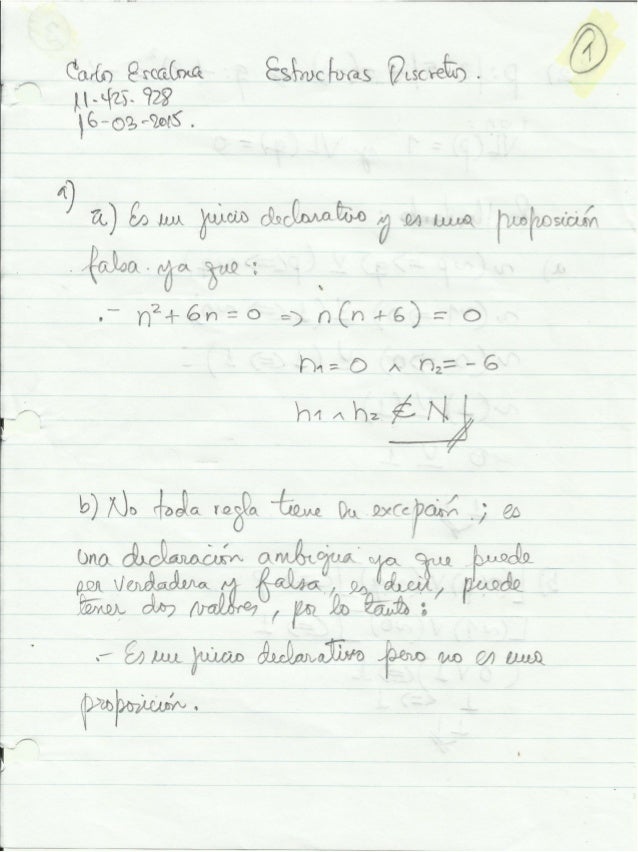 1
Carlos Escalona Estructuras Discretas.
11-425-928
16-03-2015.
1)
a) Es un juicio declarativo y es una proposición
falsa. ya que:
.- n² + 6n = 0 => n(n+6) = 0
n1 = 0 ∧ n2 = -6
n1 ∧ n2 ∉ N
b) No toda regla tiene su excepción.; es
una declaración ambigua ya que puede
ser verdadera y falsa, es decir, puede
tener dos valores, por lo tanto:
.- Es un juicio declarativo pero no es una
proposición.